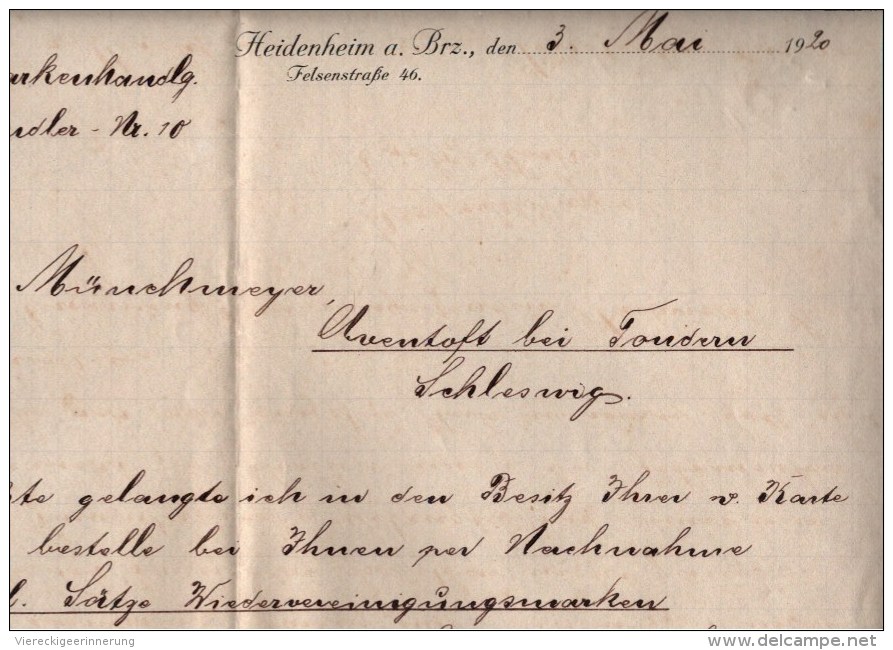 Heidenheim a. Brz., den 3. Mai 1920
Felsenstraße 46.
arkenhandlg.
ndler - Nr. 10
Münchmeyer,
Aventoft bei Tondern
Schleswig.
te gelangte ich in den Besitz Ihrer w. Karte
bestelle bei Ihnen per Nachnahme
l. Sätze Wiedervereinigungsmarken
Viereckigeerinnerung
delcampe.net